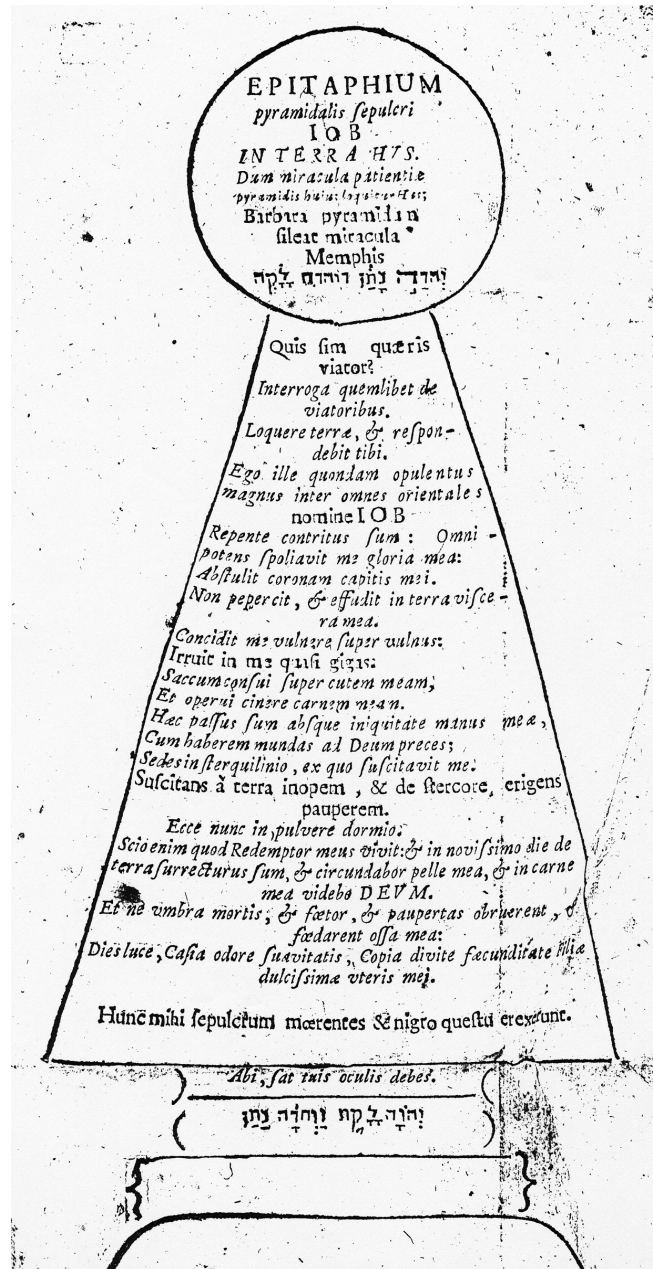 EPITAPHIUM
pyramidalis ſepulcri
IOB
IN TERRA HVS.
Dum miracula patientiæ
pyramidis huius
Barbara pyramidum
ſileat miracula
Memphis
יְהוָה נָתַן לָקַח
Quis ſim quæris
viator?
Interroga quemlibet de
viatoribus.
Loquere terræ, & reſpon-
debit tibi.
Ego ille quondam opulentus
magnus inter omnes orientales
nomine IOB
Repente contritus ſum: Omni-
potens ſpoliavit me gloria mea:
Abſtulit coronam capitis mei.
Non pepercit, & effudit in terra viſce-
ra mea.
Concidit me vulnere ſuper vulnus:
Irruit in me quaſi gigas:
Saccum conſui ſuper cutem meam,
Et operui cinere carnem meam.
Hæc paſſus ſum abſque iniquitate manus meæ,
Cum haberem mundas ad Deum preces;
Sedes in ſterquilinio, ex quo ſuſcitavit me.
Suſcitans à terra inopem, & de ſtercore, erigens
pauperem.
Ecce nunc in pulvere dormio.
Scio enim quod Redemptor meus vivit: & in noviſſimo die de
terra ſurrecturus ſum, & circundabor pelle mea, & in carne
mea videbo DEVM.
Et ne vmbra mortis, & fœtor, & paupertas obruerent,
fœdarent oſſa mea:
Dies luce, Caſia odore ſuavitatis, Copia divite fæcunditate filiæ
dulciſſimæ vteris mei.
Hunc mihi ſepulcrum mœrentes & nigro queſtu erexerunt.
Abi, ſat tuis oculis debes.
יְהוָה לָקַח נָתַן